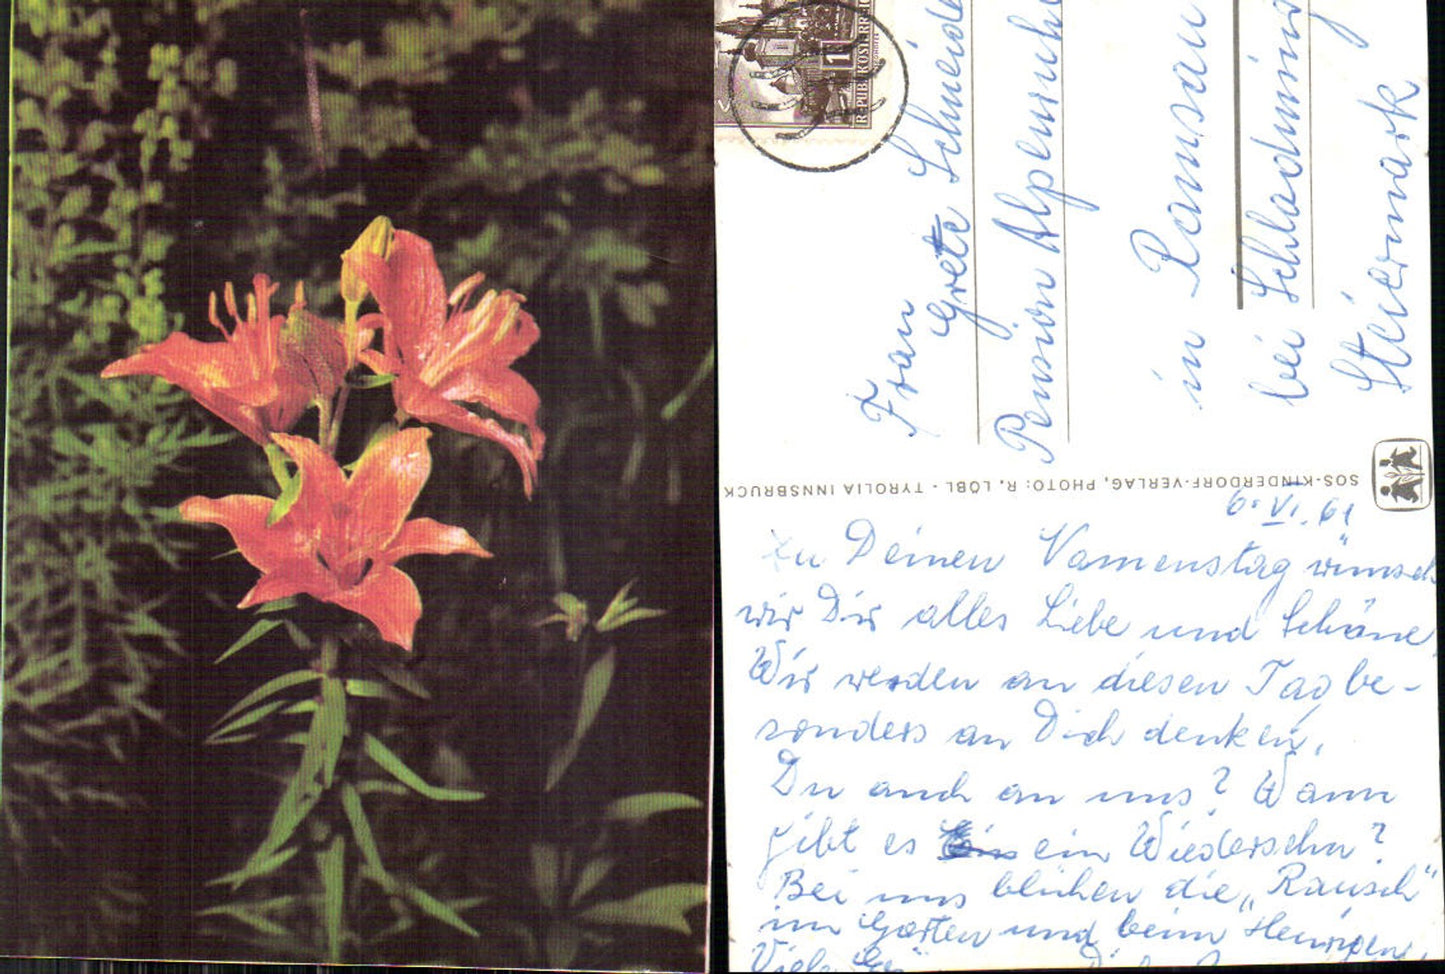 REPUBLIK ÖSTERR
1
Frau
Grete Schneide
Pension Alpenruhe
in Ramsau
bei Schladming
Steiermark
SOS-KINDERDORF-VERLAG, PHOTO: R. LÖBL - TYROLIA INNSBRUCK
6. VI. 61
Zu Deinen Namenstag wünsch
wir Dir alles Liebe und Schöne
Wir werden an diesen Tag be-
sonders an Dich denken,
Du auch an uns? Wann
gibt es ein Wiedersehn?
Bei uns blühen die „Rausch"
im Garten und beim Heurigen,
Viele